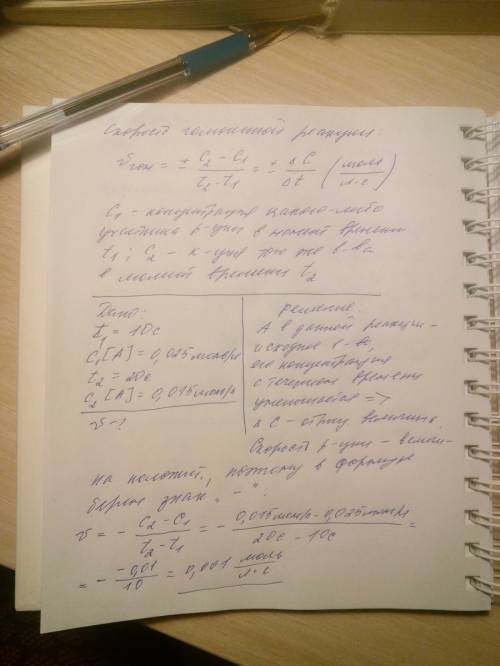 Скорость гомогенной реакции:
v гом = ± C₂ - C₁ / t₂ - t₁ = ± ΔC / Δt (моль / л·с)
C₁ - концентрация какого-либо
участника р-ции в момент времени
t₁; C₂ - к-ция того же в-ва
в момент времени t₂
Дано:
t₁ = 10с
C₁[A] = 0,025моль/л
t₂ = 20с
C₂[A] = 0,015моль/л
v - ?
Решение:
А в данной реакции -
исходное в-во,
его концентрация
с течением времени
уменьшается =>
ΔC - отриц величина.
Скорость р-ции - вели-
на положит., поэтому в формуле
берем знак „-“.
v = - C₂ - C₁ / t₂ - t₁ = - 0,015моль/л - 0,025моль/л / 20с - 10с =
= - -0,01 / 10 = 0,001 моль / л·с